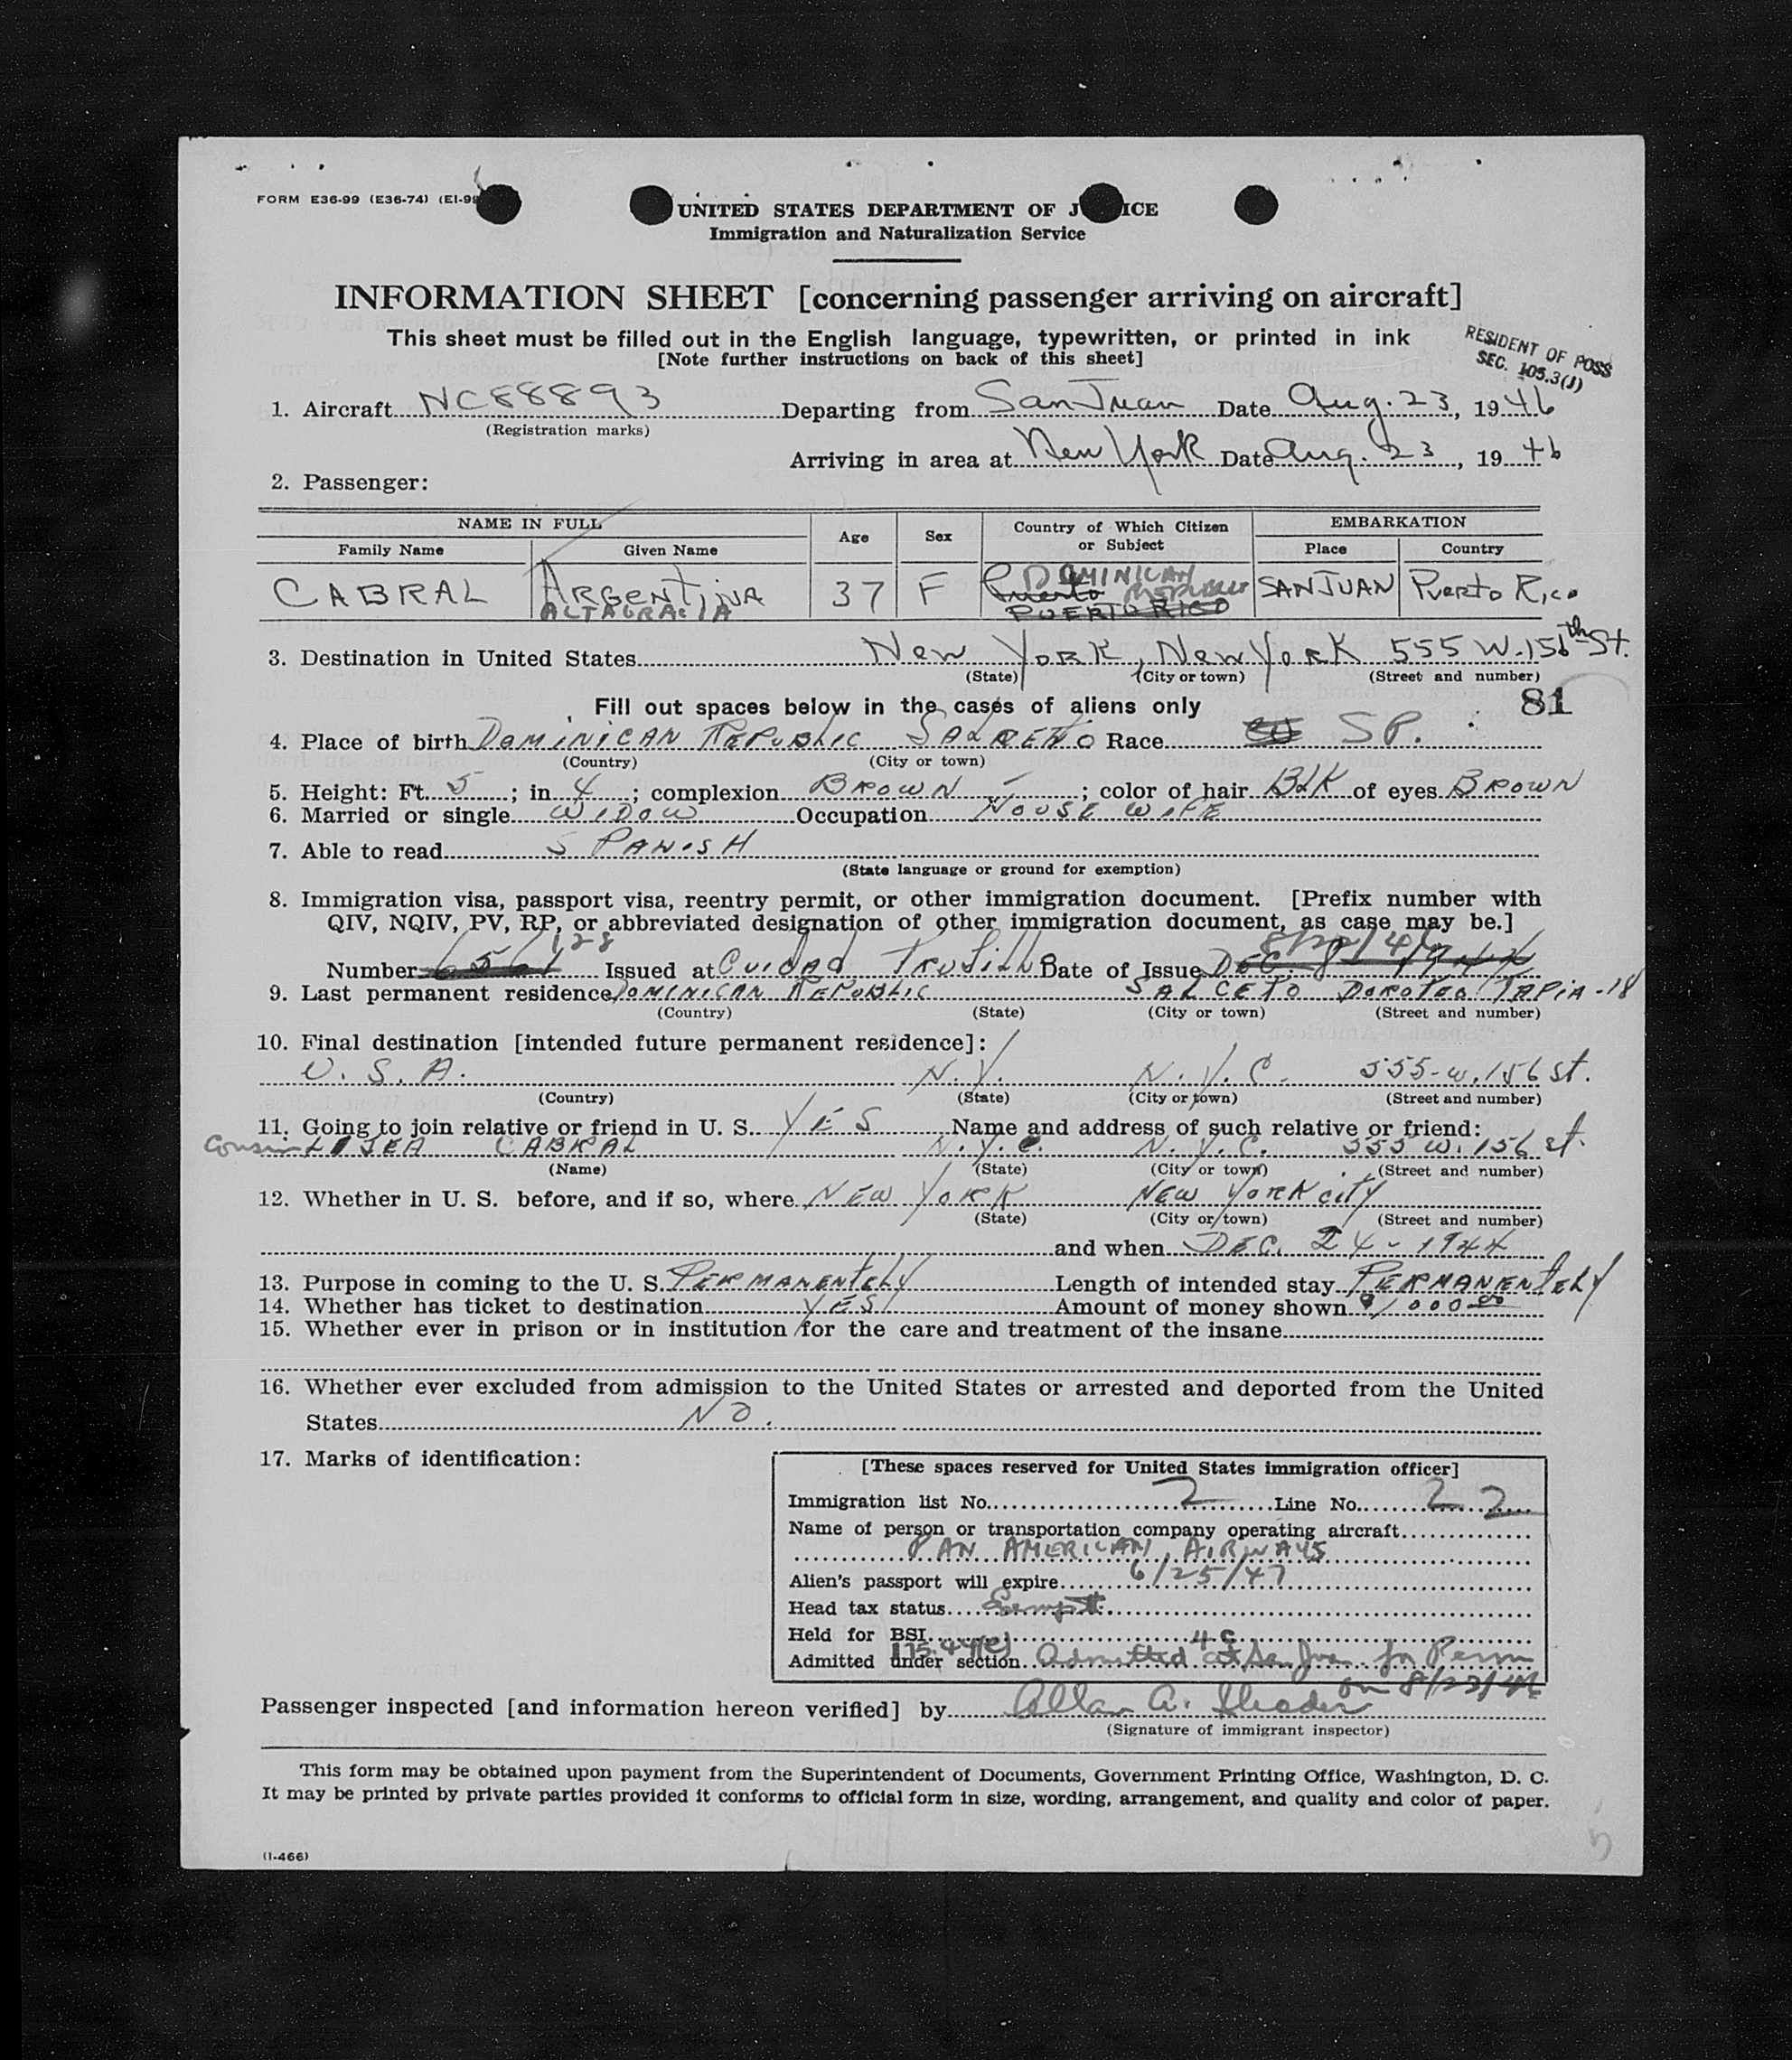 FORM E36-99 (E36-74) (EI-99
UNITED STATES DEPARTMENT OF J ICE
Immigration and Naturalization Service
INFORMATION SHEET [concerning passenger arriving on aircraft]
This sheet must be filled out in the English language, typewritten, or printed in ink
[Note further instructions on back of this sheet]
RESIDENT OF POSS
SEC. 105.3(J)
1. Aircraft NC88893 Departing from San Juan Date Aug. 23, 1946
(Registration marks)
Arriving in area at New York Date Aug. 23, 1946
2. Passenger:
NAME IN FULL Age Sex Country of Which Citizen or Subject EMBARKATION
Family Name Given Name Place Country
CABRAL ARGENTINA ALTAGRACIA 37 F DOMINICAN REPUBLIC Puerto PUERTO RICO SAN JUAN Puerto Rico
3. Destination in United States New York, New York 555 W. 156th St.
(State) (City or town) (Street and number)
Fill out spaces below in the cases of aliens only 81
4. Place of birth DOMINICAN REPUBLIC SALCEDO Race SP.
(Country) (City or town)
5. Height: Ft. 5; in 4; complexion BROWN; color of hair BLK of eyes BROWN
6. Married or single WIDOW Occupation HOUSE WIFE
7. Able to read SPANISH
(State language or ground for exemption)
8. Immigration visa, passport visa, reentry permit, or other immigration document. [Prefix number with
QIV, NQIV, PV, RP, or abbreviated designation of other immigration document, as case may be.]
Number 128 Issued at CUIDAD TRUJILLO Date of Issue 8/22/46
9. Last permanent residence DOMINICAN REPUBLIC SALCETO DOROTEO TAPIA-18
(Country) (State) (City or town) (Street and number)
10. Final destination [intended future permanent residence]:
U. S. A. N.Y. N.Y.C. 555-W. 156 st.
(Country) (State) (City or town) (Street and number)
11. Going to join relative or friend in U. S. YES Name and address of such relative or friend:
cousin CABRAL N.Y.C. N.Y.C. 555 W. 156 st.
(Name) (State) (City or town) (Street and number)
12. Whether in U. S. before, and if so, where NEW YORK NEW YORK City
(State) (City or town) (Street and number)
and when DEC. 24-1944
13. Purpose in coming to the U. S. PERMANENTELY Length of intended stay PERMANENTELY
14. Whether has ticket to destination YES Amount of money shown $1000.00
15. Whether ever in prison or in institution for the care and treatment of the insane
16. Whether ever excluded from admission to the United States or arrested and deported from the United
States NO.
17. Marks of identification:
[These spaces reserved for United States immigration officer]
Immigration list No. 2 Line No. 22
Name of person or transportation company operating aircraft
PAN AMERICAN AIRWAYS
Alien's passport will expire 6/25/47
Head tax status Exempt
Held for BSI 4c
Admitted under section 175.44(e) Admitted at San Juan for Perm
on 8/23/46
Passenger inspected [and information hereon verified] by Allan A.
(Signature of immigrant inspector)
This form may be obtained upon payment from the Superintendent of Documents, Government Printing Office, Washington, D. C.
It may be printed by private parties provided it conforms to official form in size, wording, arrangement, and quality and color of paper.
(I-466)